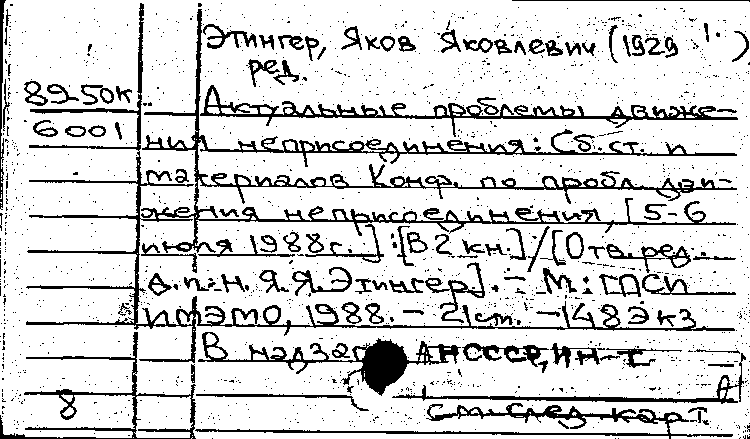 Этингер, Яков Яковлевич (1929 )
ред.
89-50к
Актуальные проблемы движе-
6001
ния неприсоединения: Сб. ст. и
материалов Конф. по пробл. дви-
жения неприсоединения, [5-6
июля 1988г.]: [В 2 кн.] / [Отв. ред.
д.и.н. Я.Я. Этингер]. - М: ГПСИ
ИМЭМО, 1988. - 21 см. - 148 экз.
В надзаг. АНСССР, Ин-т
8
см. след карт.